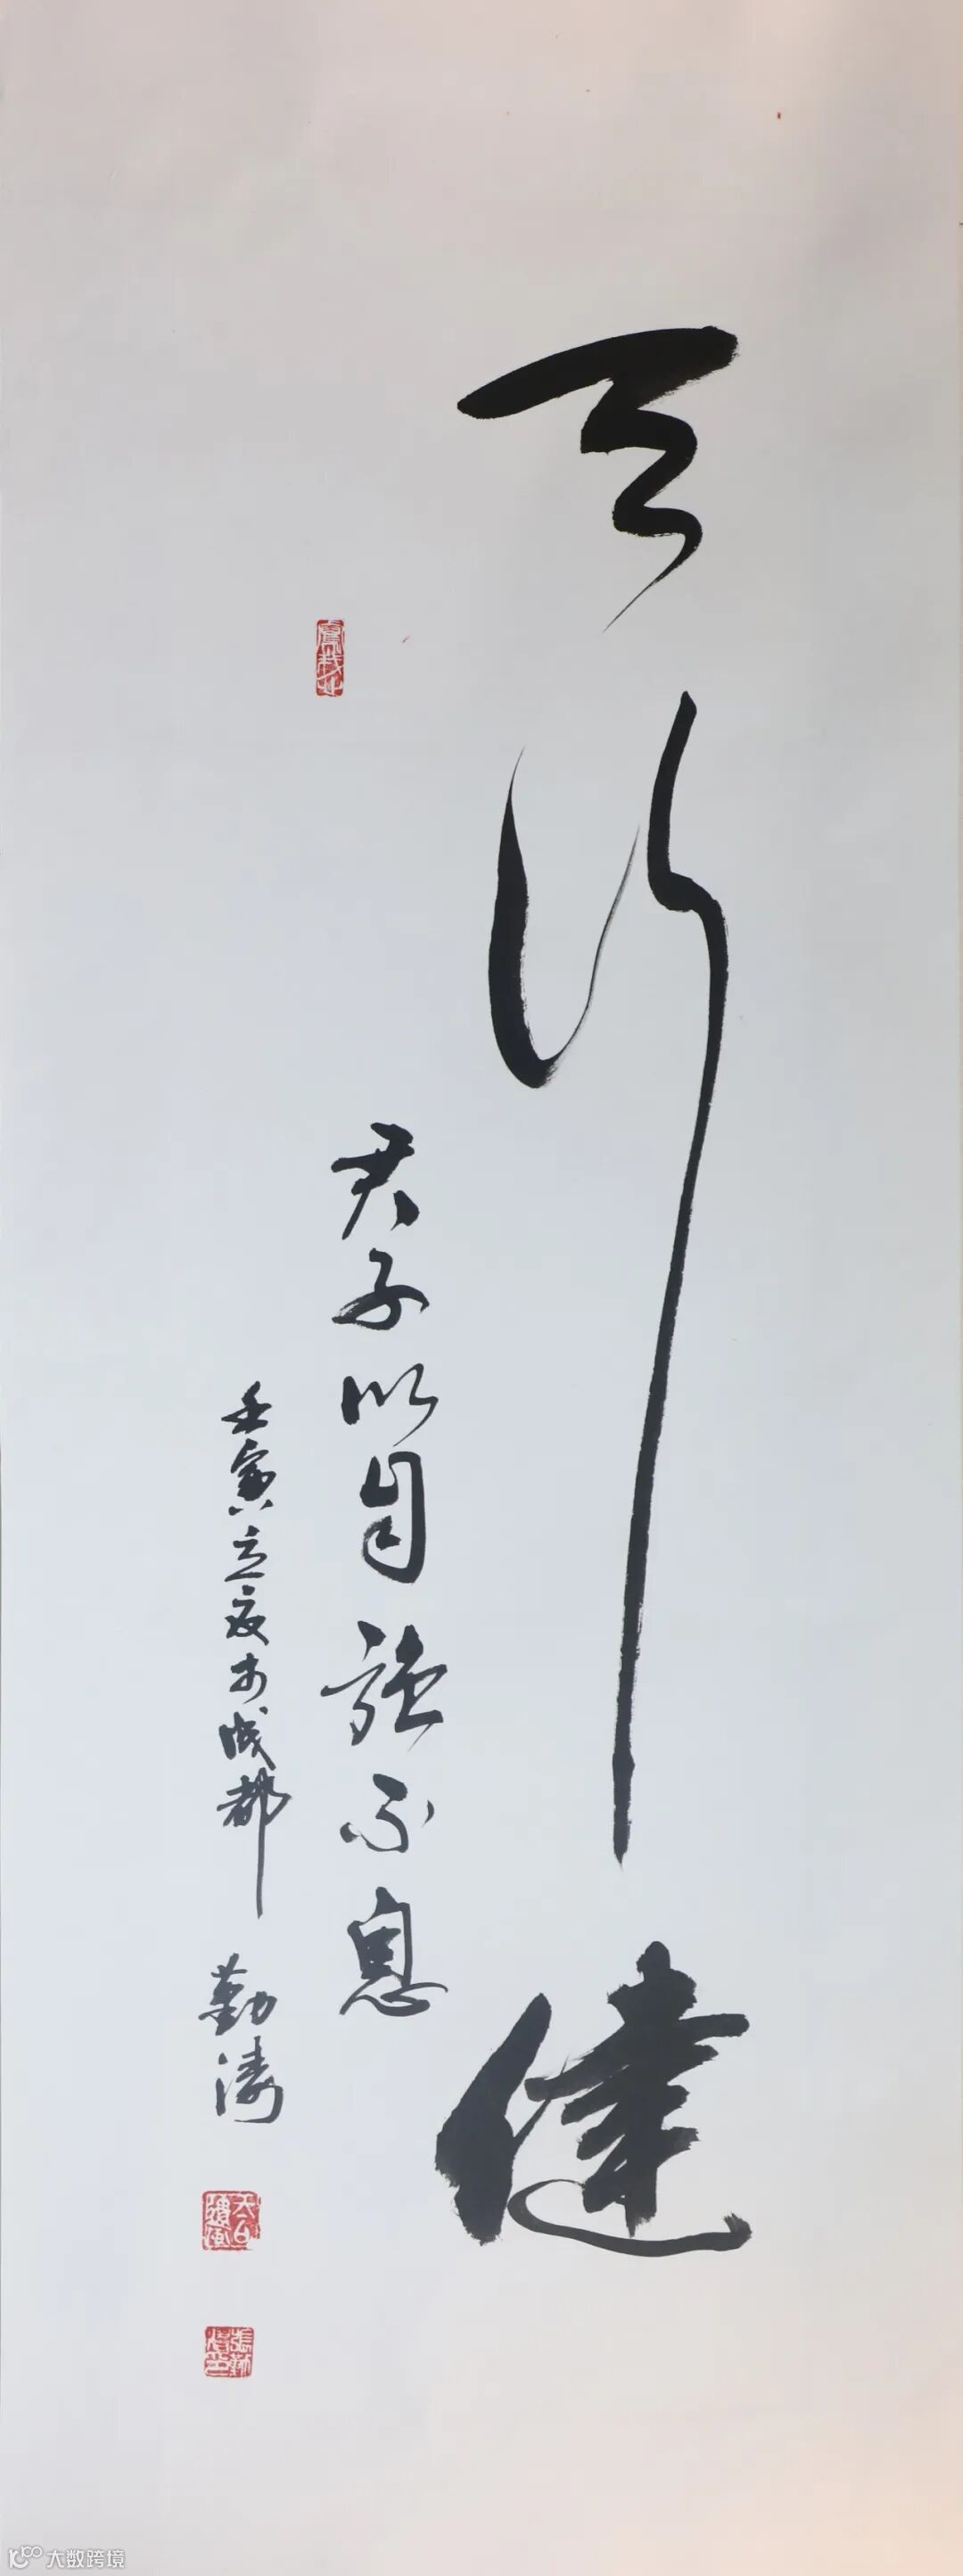 天行健
君子以自强不息
壬寅立夏于成都
勤涛
大数跨境